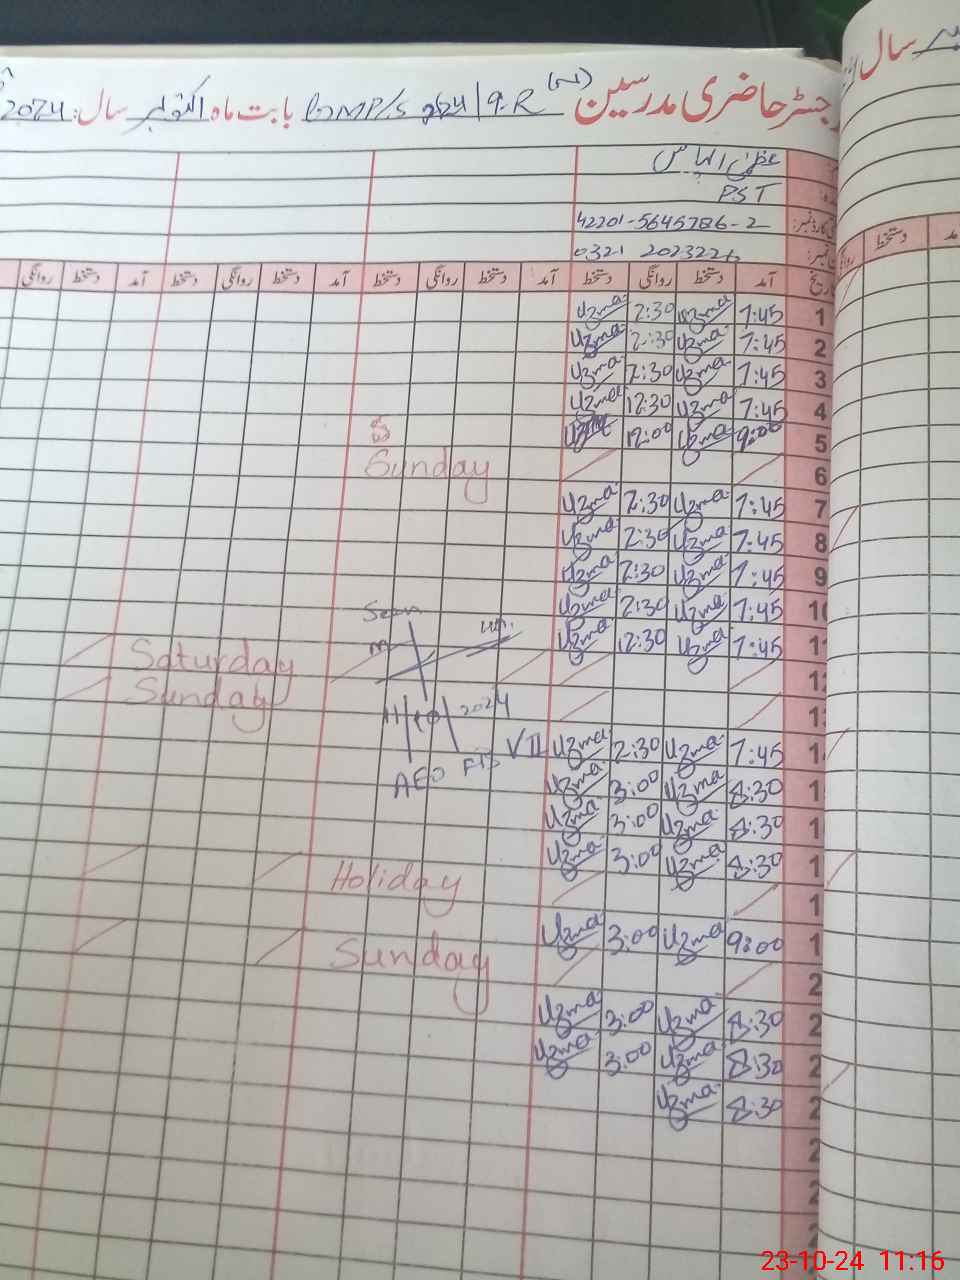 رجسٹر حاضری مدرسین GMP/S 264/9.R بابت ماہ اکتوبر سال: 2024
سال
عظمیٰ الیاس
PST
42201-5645786-2
0321 2023226
تاریخ آمد دستخط روانگی دستخط آمد دستخط روانگی دستخط آمد دستخط روانگی دستخط آمد دستخط روانگی
1 7:45 Uzma 2:30 Uzma
2 7:45 Uzma 2:30 Uzma
3 7:45 Uzma 2:30 Uzma
4 7:45 Uzma 12:30 Uzma
5 9:00 Uzma 12:00 Uzma
6 Sunday
7 7:45 Uzma 2:30 Uzma
8 7:45 Uzma 2:30 Uzma
9 7:45 Uzma 2:30 Uzma
10 7:45 Uzma 2:30 Uzma
11 7:45 Uzma 12:30 Uzma
Seen
Saturday
Sunday
11/10/2024
AEO
VII
7:45 Uzma 2:30 Uzma
8:30 Uzma 3:00 Uzma
8:30 Uzma 3:00 Uzma
8:30 Uzma 3:00 Uzma
Holiday
9:00 Uzma 3:00 Uzma
Sunday
8:30 Uzma 3:00 Uzma
8:30 Uzma 3:00 Uzma
8:30 Uzma
23-10-24 11:16